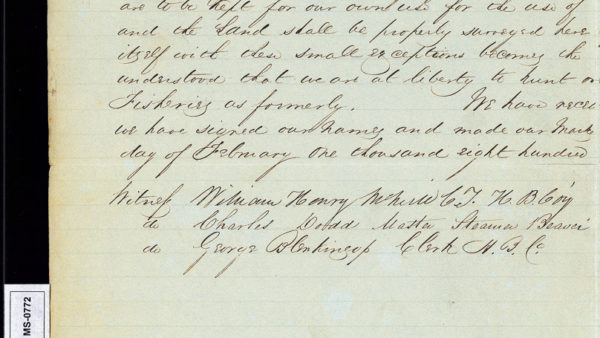 are to be kept for our own use for the use of
and the Land shall be properly surveyed here
itself with these small exceptions becomes the
understood that we are at liberty to hunt o
Fisheries as formerly. We have recei
we have signed our names and made our Marks
day of February One thousand eight hundred
Witness William Henry McNeill C.T. H.B. Coy
do Charles Dodd Master Steamer Beaver
do George Blenkinsop Clerk H.B. Co.
MS-0772